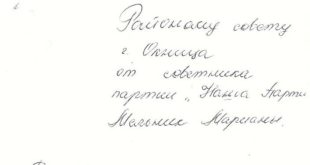 Районому совету
г. Окница
от советника
партии „Наша Парти
Мельник Марианы.